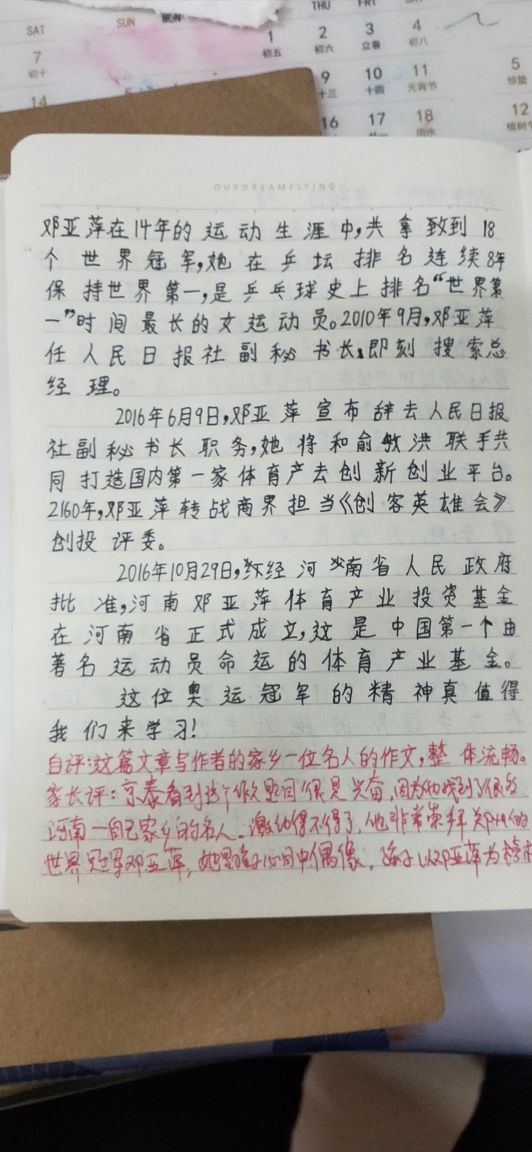 SAT SUN MON THU FRI SAT
7 1 2 3 4
初十 初五 初六 立春 初八
14 9 10 11 5
十三 十四 元宵节 惊蛰
16 17 18 12
雨水 植树节
OURDREAMFLYING
邓亚萍在14年的运动生涯中,共拿致到18
个世界冠军,她在乒坛排名连续8年
保持世界第一,是乒乓球史上排名“世界第
一”时间最长的女运动员。2010年9月,邓亚萍
任人民日报社副秘书长,即刻搜索总
经理。
2016年6月9日,邓亚萍宣布辞去人民日报
社副秘书长职务,她将和俞敏洪联手共
同打造国内第一家体育产去创新创业平台。
2160年,邓亚萍转战商界担当《创客英雄会》
创投评委。
2016年10月29日,经河南省人民政府
批准,河南邓亚萍体育产业投资基金
在河南省正式成立,这是中国第一个由
著名运动员命运的体育产业基金。
这位奥运冠军的精神真值得
我们来学习!
自评:这篇文章写作者的家乡一位名人的作文,整体流畅。
家长评:京泰看到这个做题目很是兴奋,因为他找到了很多
河南一自己家乡的名人。激动得不得了,他非常崇拜郑州的
世界冠军邓亚萍,她是孩子心目中偶像,孩子以邓亚萍为榜